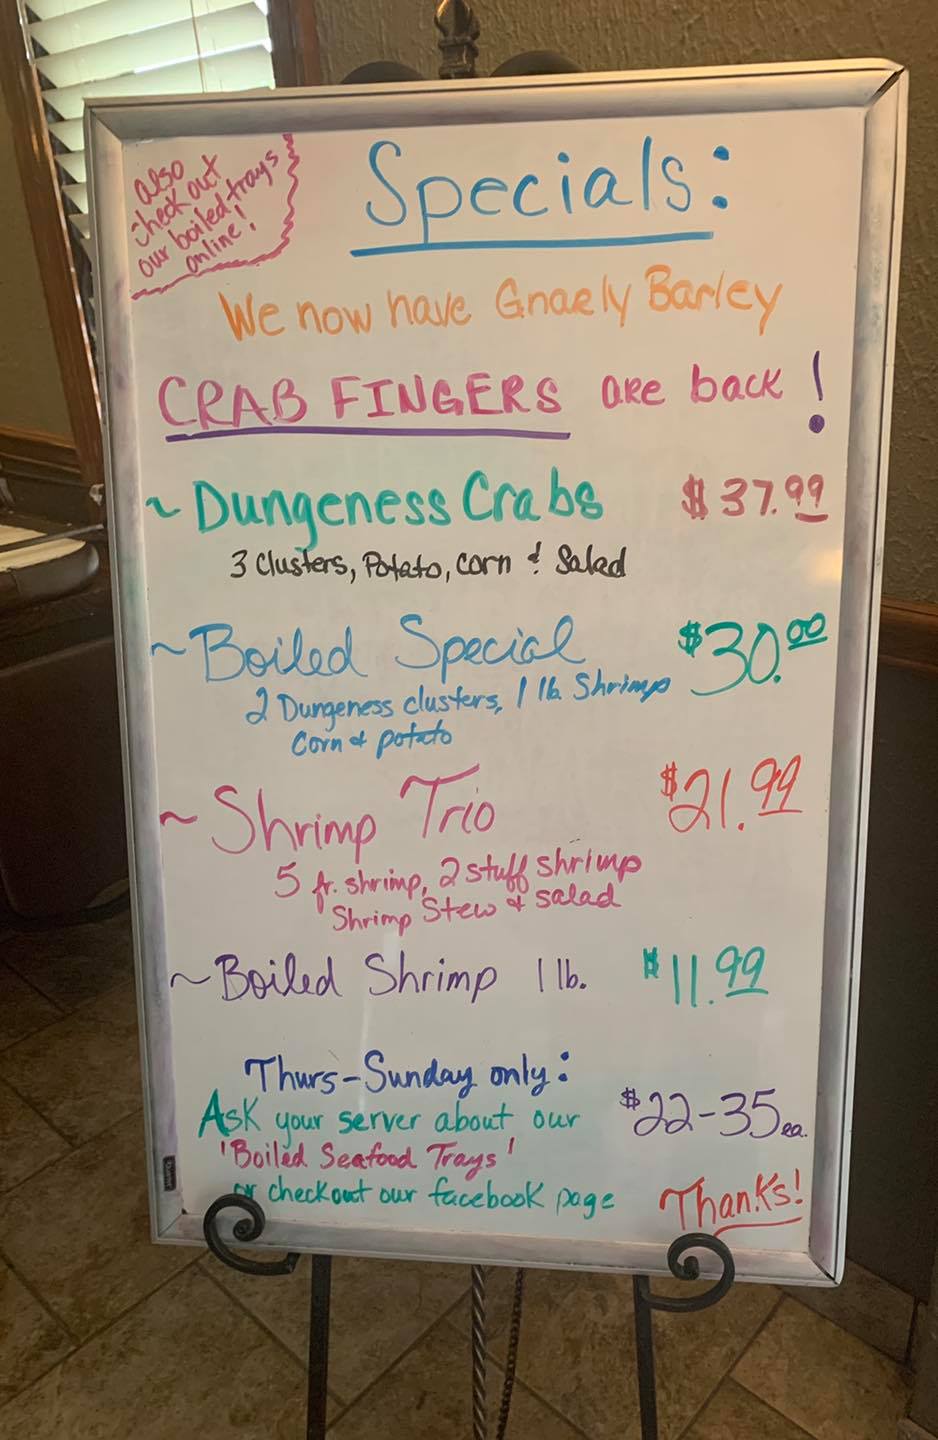 also
check out
our boiled trays
online!
Specials:
We now have Gnarly Barley
CRAB FINGERS are back!
~ Dungeness Crabs $37.99
3 Clusters, Potato, corn & Salad
~ Boiled Special $30.00
2 Dungeness clusters, 1 lb. Shrimp
Corn & potato
~ Shrimp Trio $21.99
5 fr. shrimp, 2 stuff shrimp
Shrimp Stew & salad
~ Boiled Shrimp 1 lb. $11.99
Thurs-Sunday only:
Ask your server about our $22-35 ea.
'Boiled Seafood Trays'
or checkout our facebook page Thanks!